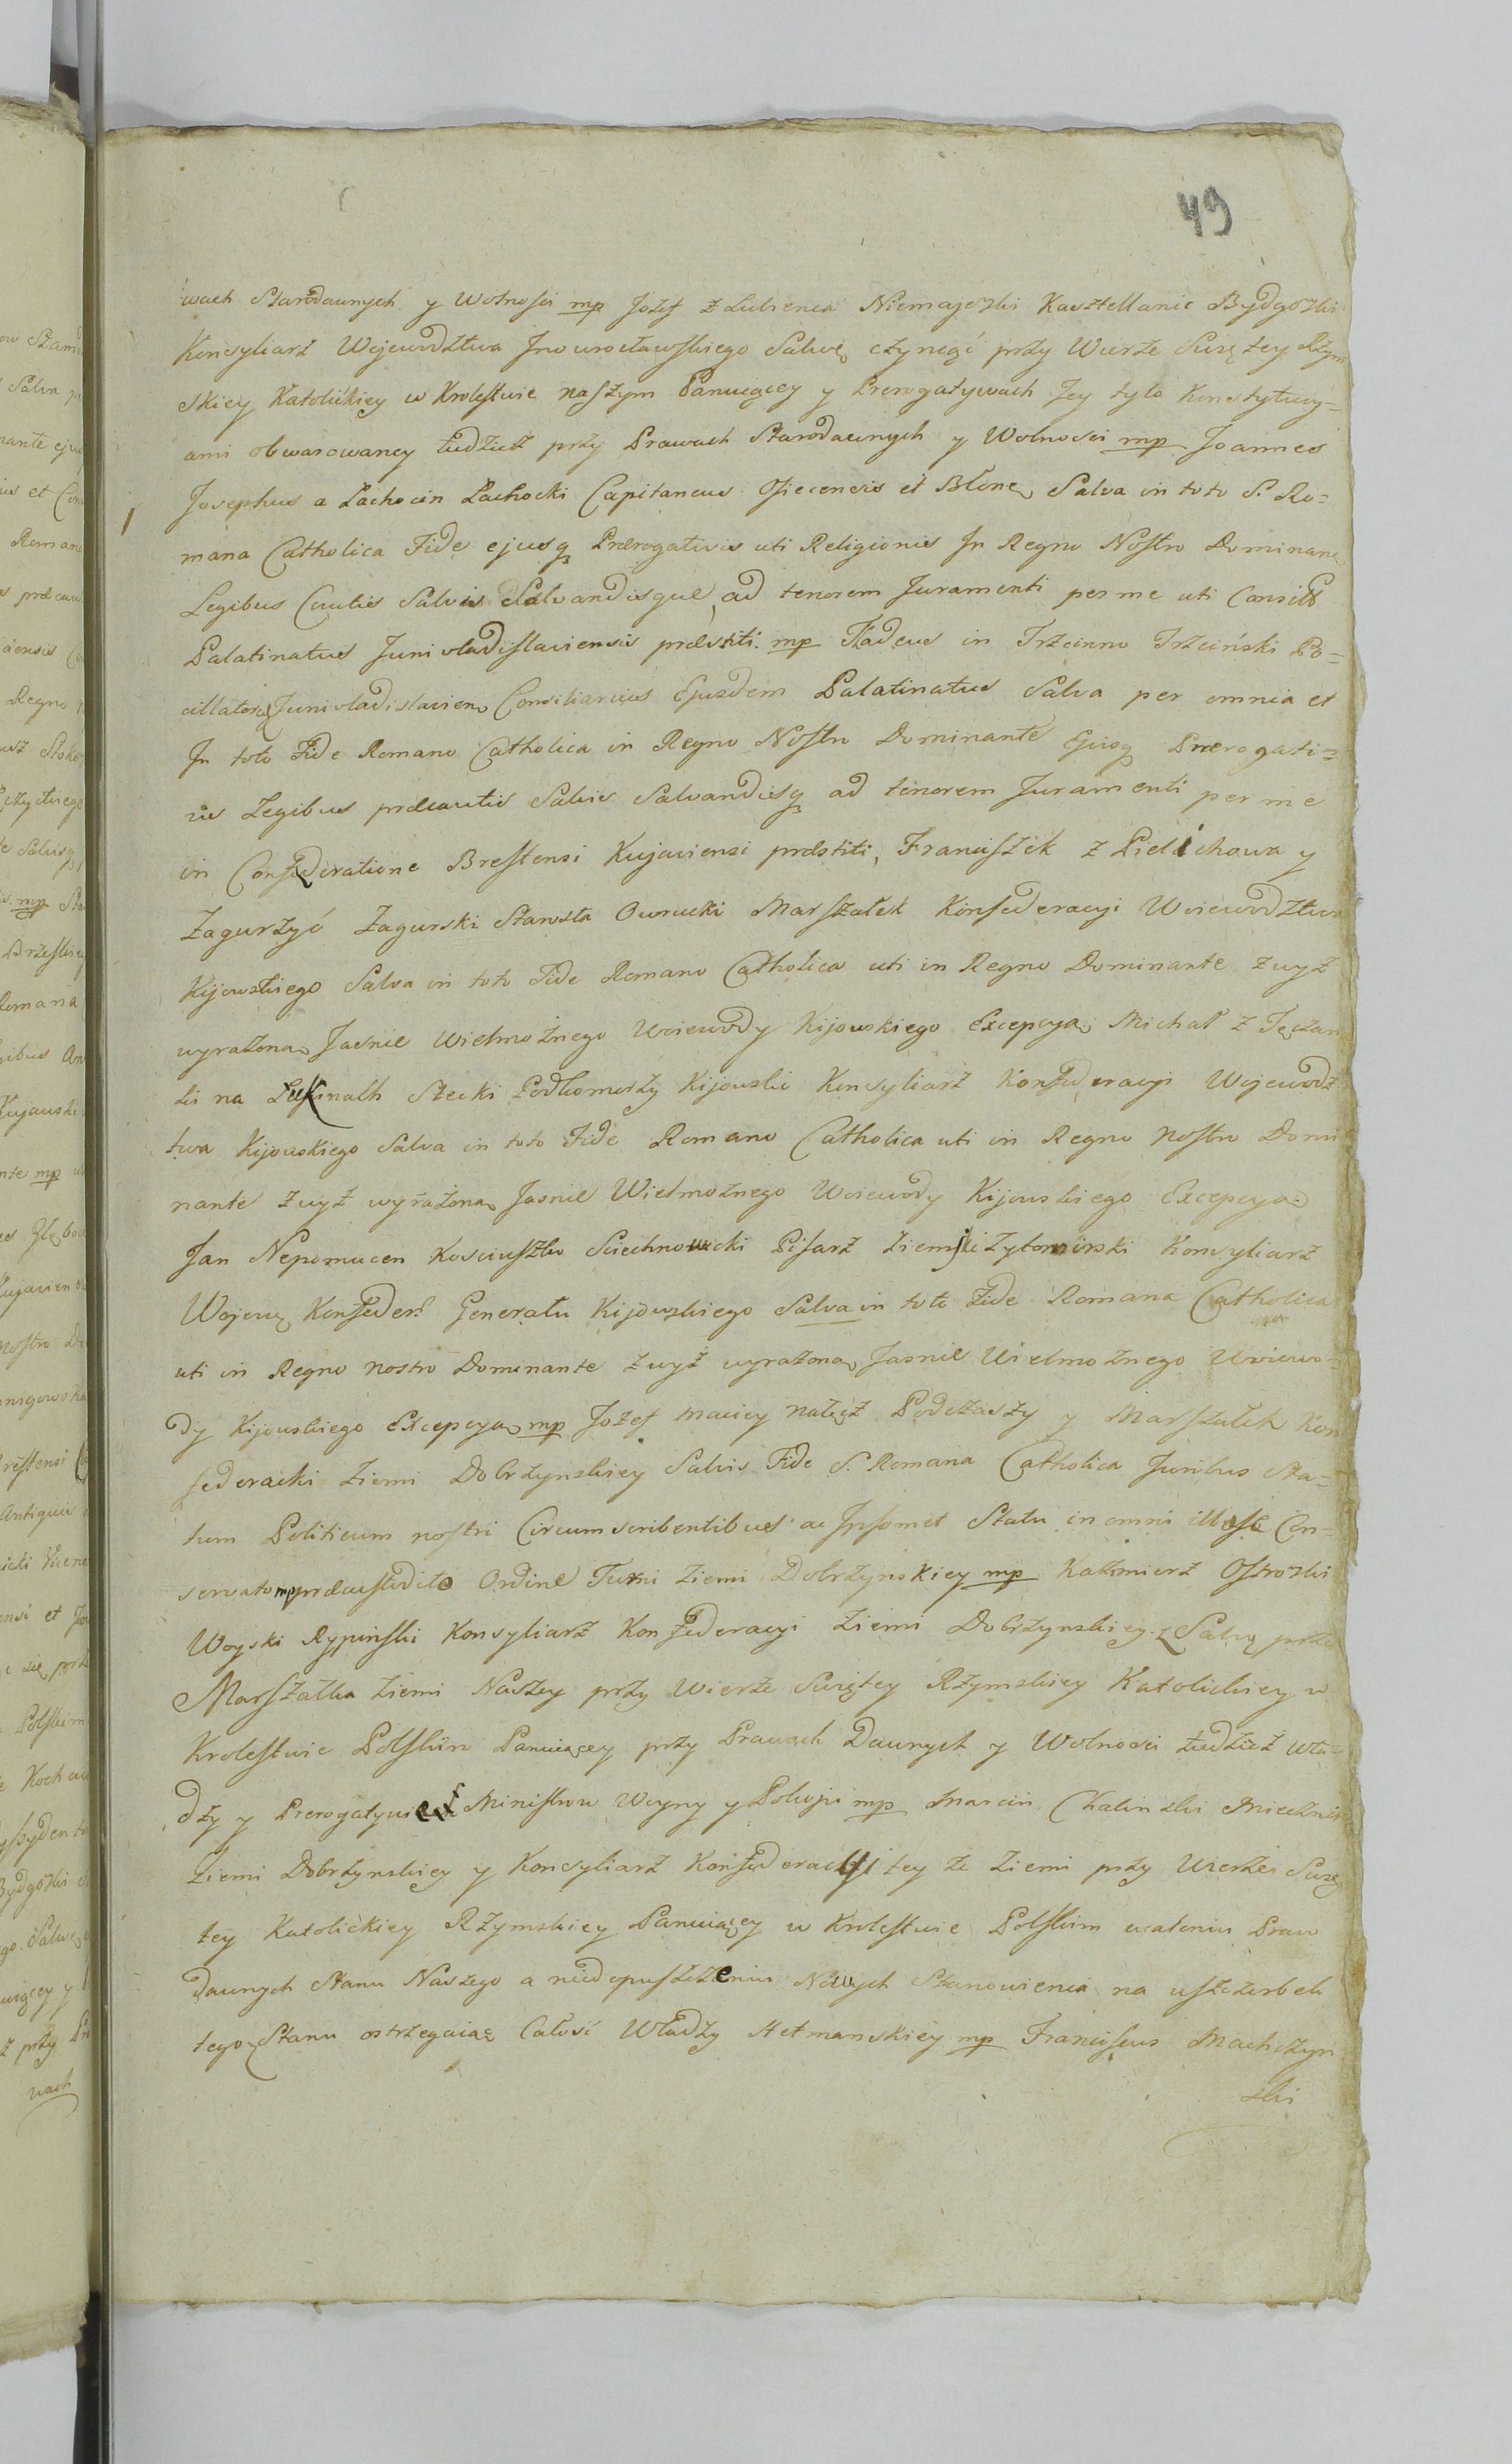 49
wach Starodawnych y Wolnosci mp Jozef z Lubienca Niemajewski Kasztellanic Bydgoski
Konsyliarz Wojewodztwa Jnowrocławskiego Salwę czyniąc przy Wierze Swiętey Rzym
skiey Katolickiey w Krolestwie naszym Panuiącey y Prerogatywach Jey tylo Konstytucy=
ami obwarowaney tudziesz przy Prawach Starodawnych y Wolnosci mp Joannes
Josephus a Lachocin Lachocki Capitaneus Osiecensis et Blone Salva in toto S. Ro=
mana Catholica Fide ejusq Prærogativis uti Religionis Jn Regno Nostro Dominan
Legibus Cautis Salvis Salvandisque ad tenorem Juramenti per me uti Consil
Palatinatus Junivladislaviensis præstiti mp Tadeus in Trzcinno Trzciński Po=
cillator Junivladislavien Consiliarius Ejusdem Palatinatus Salva per omnia et
Jn toto Fide Romano Catholica in Regno Nostro Dominante Ejusq Prærogati=
vis Legibus præcautis Salvis Salvandisq ad tenorem Juramenti per me
in Confederatione Brestensi Kujaviensi præstiti, Franciszek z Pielichowa y
Zagurzyć Zagurski Starosta Owrucki Marszałek Konfederacyi Woiewodztwa
Kijowskiego Salva in toto Fide Romano Catholica uti in Regno Dominante zwyż
wyrażona Jasnie Wielmożnego Woiewody Kijowskiego Excepcya Michał z
ki na Stecki Podkomorzy Kijowski Konsyliarz Konfederacyi Wojewodz
twa Kijowskiego Salva in toto Fide Romano Catholica uti in Regno Nostro Domi
nante zwyż wyrażona Jasnie Wielmożnego Woiewody Kijowskiego Excepcya
Jan Nepomucen Kosciuszko Siechnowicki Pisarz Ziemski Zytomirski Konsyliarz
Wojew Konfeder Generału Kijowskiego Salva in toto Fide Romana Catholica
uti in Regno nostro Dominante zwyż wyrażona Jasnie Wielmożnego Woiewo=
dy Kijowskiego Excepcya mp Jozef Maciey Nałęcz Podczaszy y Marszałek Kon
federacki Ziemi Dobrzynskiey Salvis Fide S. Romana Catholica Juribus Sta=
tum Politicum nostri Circumscribentibus ac Jpsomet Statu in omni illæso Con=
servato mp Ordine Turni Ziemi Dobrzynskiey mp Kazimierz Ostrowski
Woyski Rypinski Konsyliarz Konfederacyi Ziemi Dobrzynskiey z Salwą przez
Marszałka Ziemi Naszey przy Wierze Swiętey Rzymskiey Katolickiey w
Krolestwie Polskim Panuiącey przy Prawach Dawnych y Wolnosci tudzież wła=
dzy y Prerogatywie Ministrow Woyny y Pokoju mp Marcin Chalinski Miecznik
Ziemi Dobrzynskiey y Konsyliarz Konfederacyi tey ze Ziemi przy Wierze Swię
tey Katolickiey Rzymskiey Panuiącey w Krolestwie Polskim całeniu Praw
dawnych Stanu Naszego a niedopuszczeniu Nowych Stanowienia na uszczerbek
tego Stanu ostrzegaiąc Całosc Władzy Hetmanskiey mp Franciscus Machczyn
ski